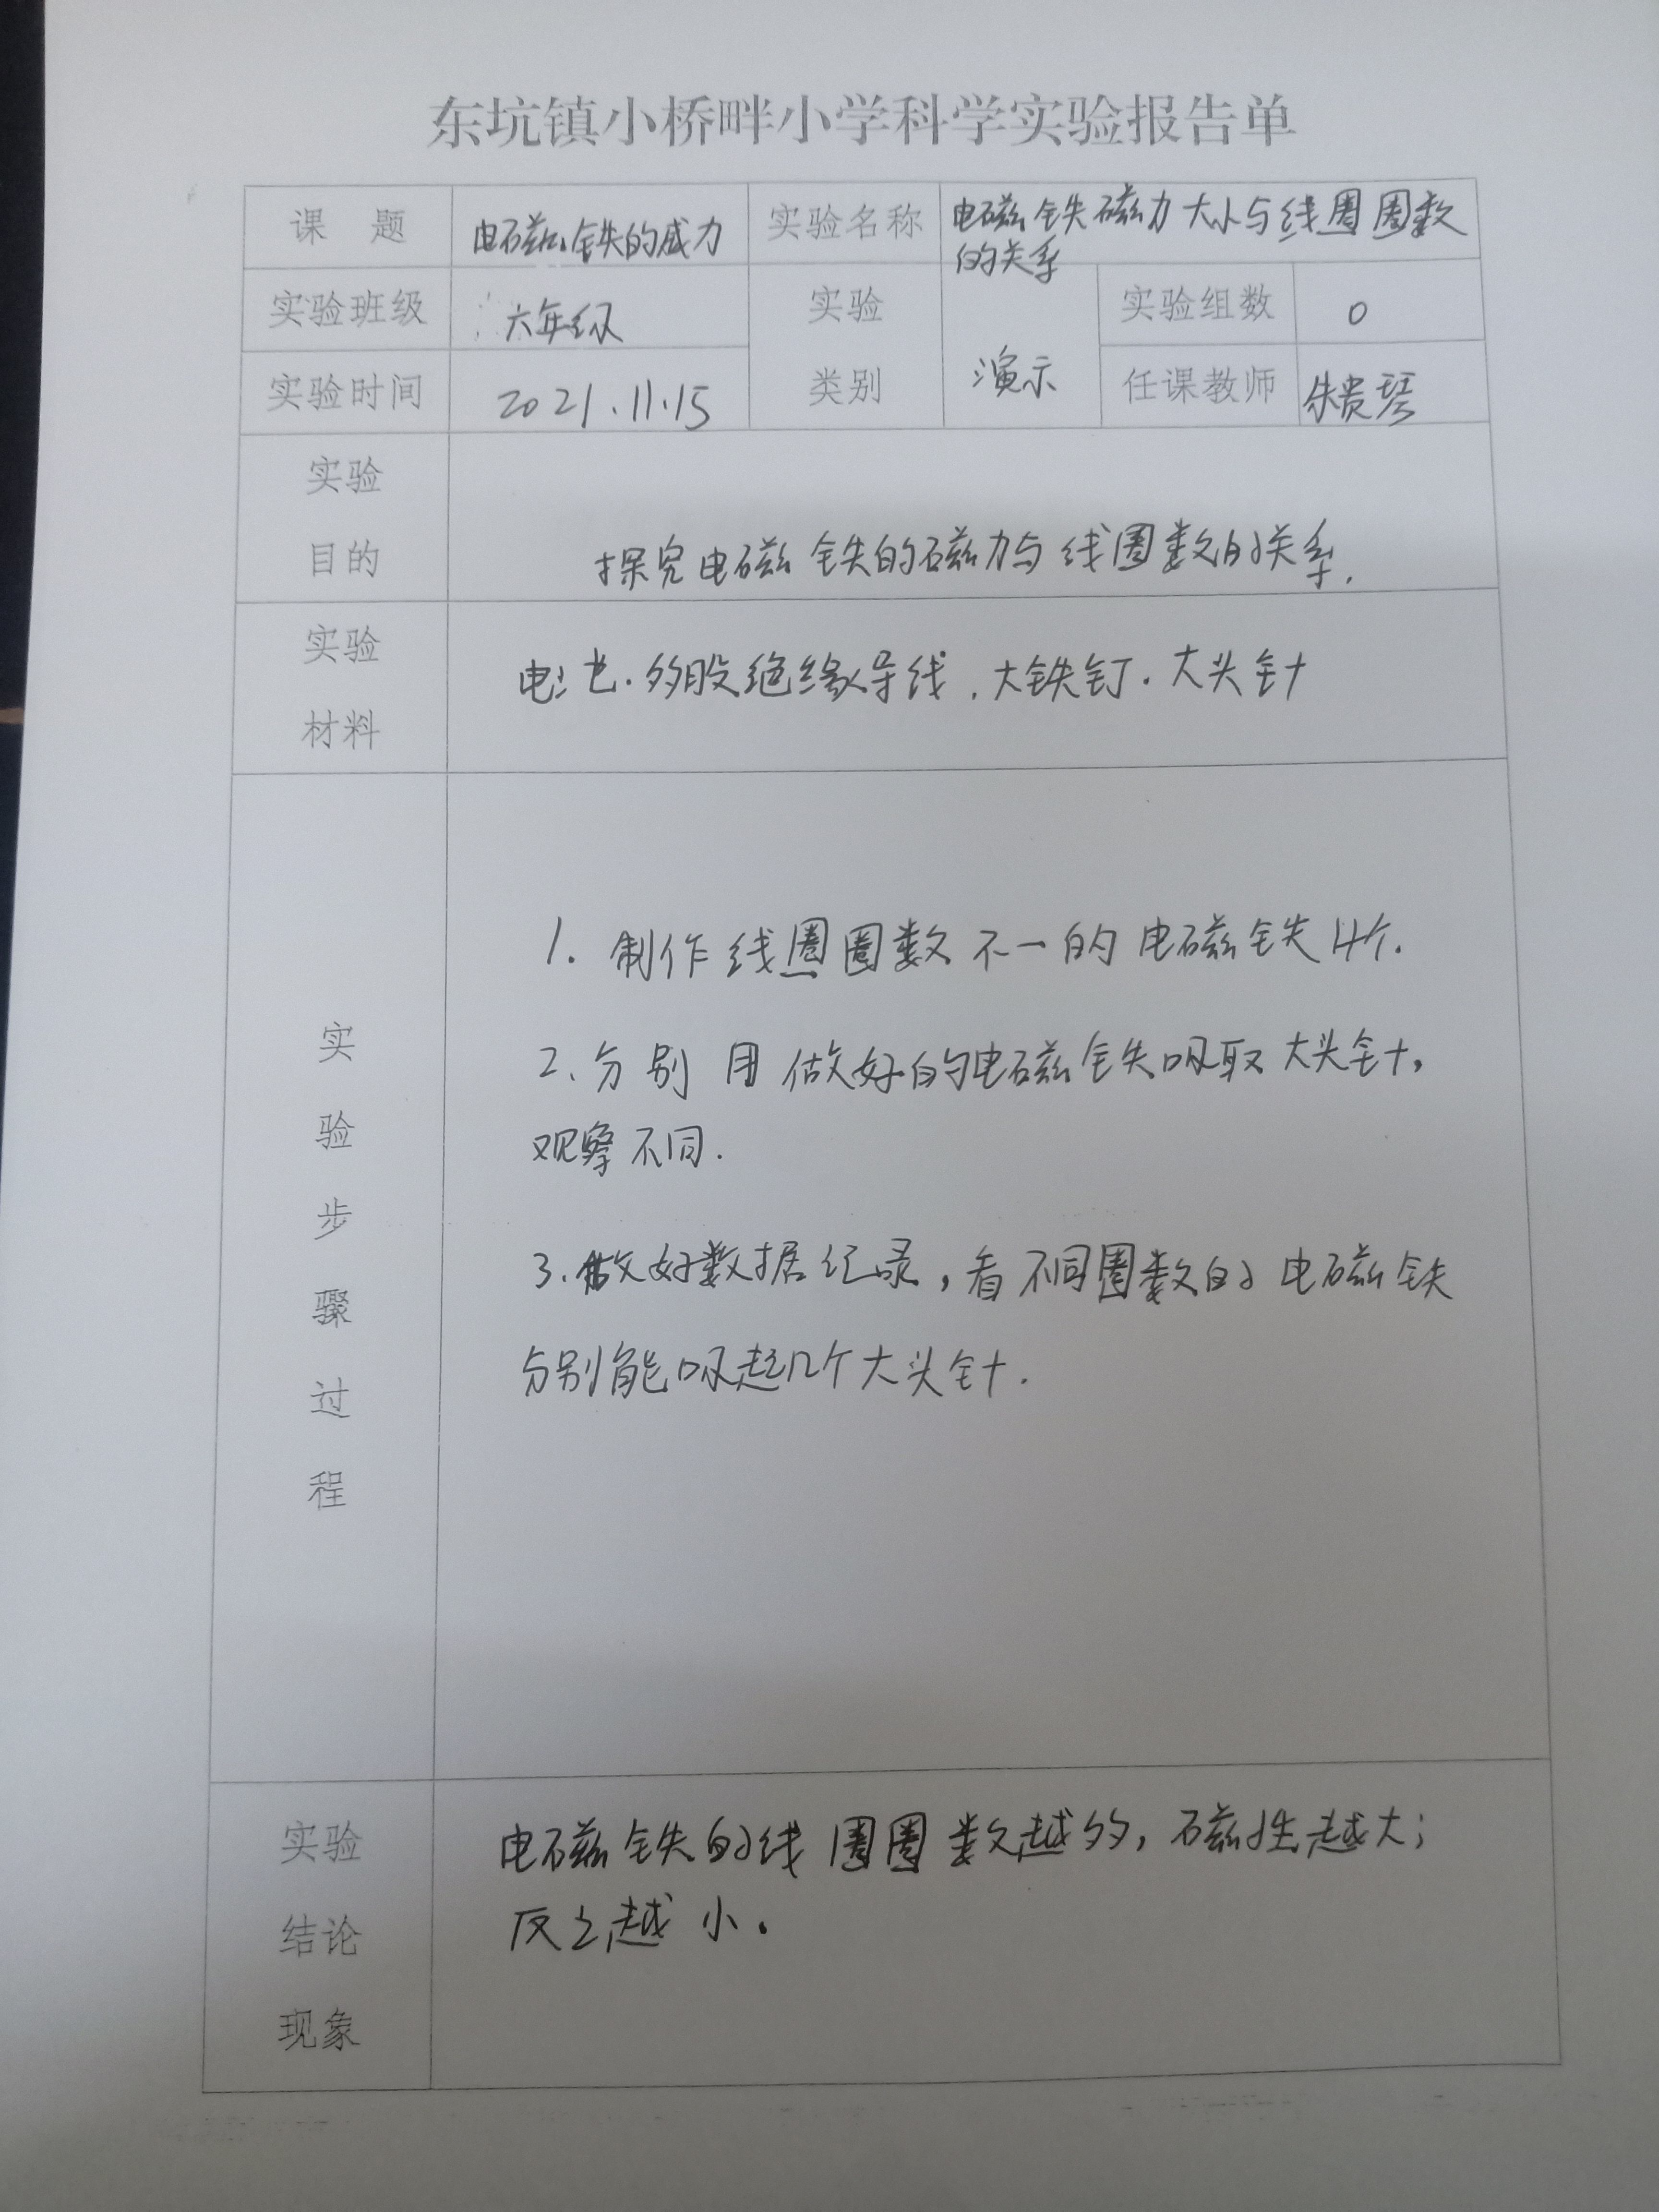 东坑镇小桥畔小学科学实验报告单
课 题 电磁铁的威力 实验名称 电磁铁磁力大小与线圈圈数
的关系
实验班级 六年级 实验 实验组数 0
实验时间 2021.11.15 类别 演示 任课教师 朱贵琴
实验
目的
探究电磁铁的磁力与线圈数的关系.
实验
材料
电池.多股绝缘导线.大铁钉.大头针
实
验
步
骤
过
程
1. 制作线圈圈数不一的电磁铁4个.
2.分别用做好的电磁铁吸取大头针,
观察不同.
3.做好数据纪录,看不同圈数的电磁铁
分别能吸起几个大头针.
实验
结论
现象
电磁铁的线圈圈数越多,磁性越大;
反之越小。